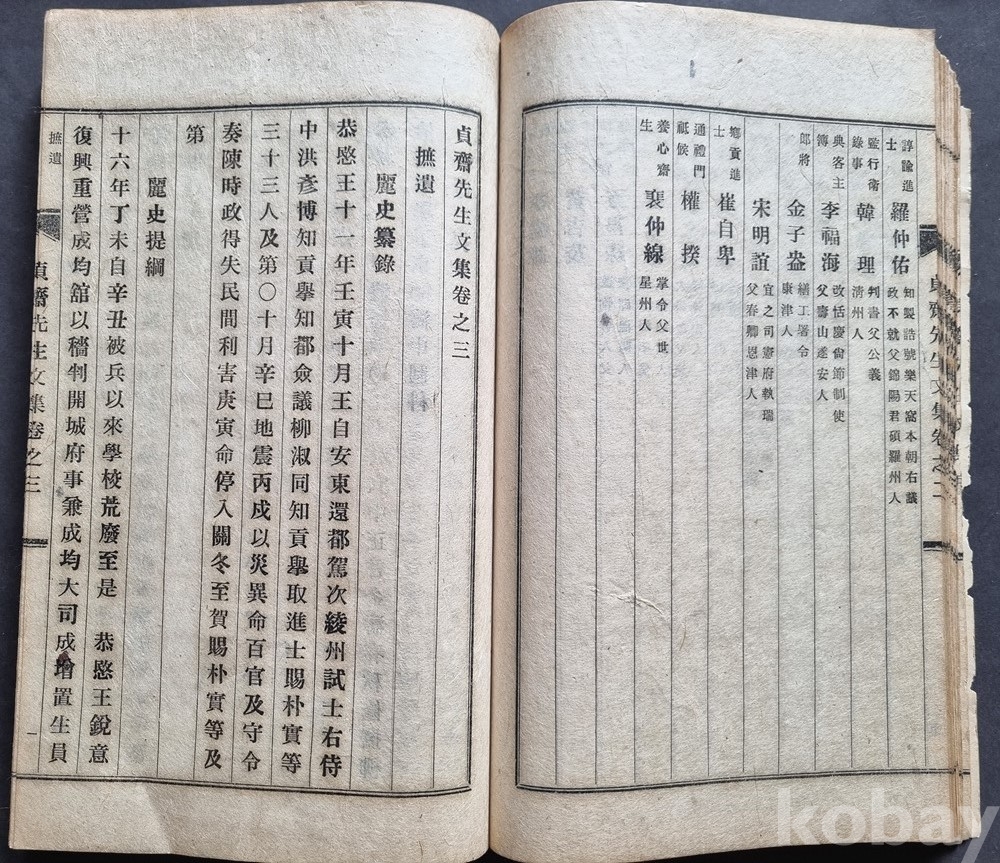 諄諭進士 羅仲佑 知製誥號樂天窩本朝右議
政不就父錦陽君碩羅州人
監行衛錄事 韓理 判書父公義
清州人
典客主簿 李福海 改恬慶尙節制使
父壽山遂安人
郎將 金子盎 繕工署令
康津人
宋明誼 宜之司憲府執瑞
父春卿恩津人
鄕貢進士 崔自卑
通禮門祗候 權揆
養心齋生 裴仲線 掌令父世
星州人
貞齋先生文集卷之二
貞齋先生文集卷之三
摭遺
麗史纂錄
恭愍王十一年壬寅十月王自安東還都駕次綾州試士右侍
中洪彥博知貢擧知都僉議柳淑同知貢擧取進士賜朴實等
三十三人及第○十月辛巳地震丙戌以災異命百官及守令
奏陳時政得失民間利害庚寅命停入關冬至賀賜朴實等及
第
麗史提綱
十六年丁未自辛丑被兵以來學校荒廢至是 恭愍王銳意
復興重營成均舘以穡判開城府事兼成均大司成增置生員
摭遺
貞齋先生文集卷之三
一
kobay